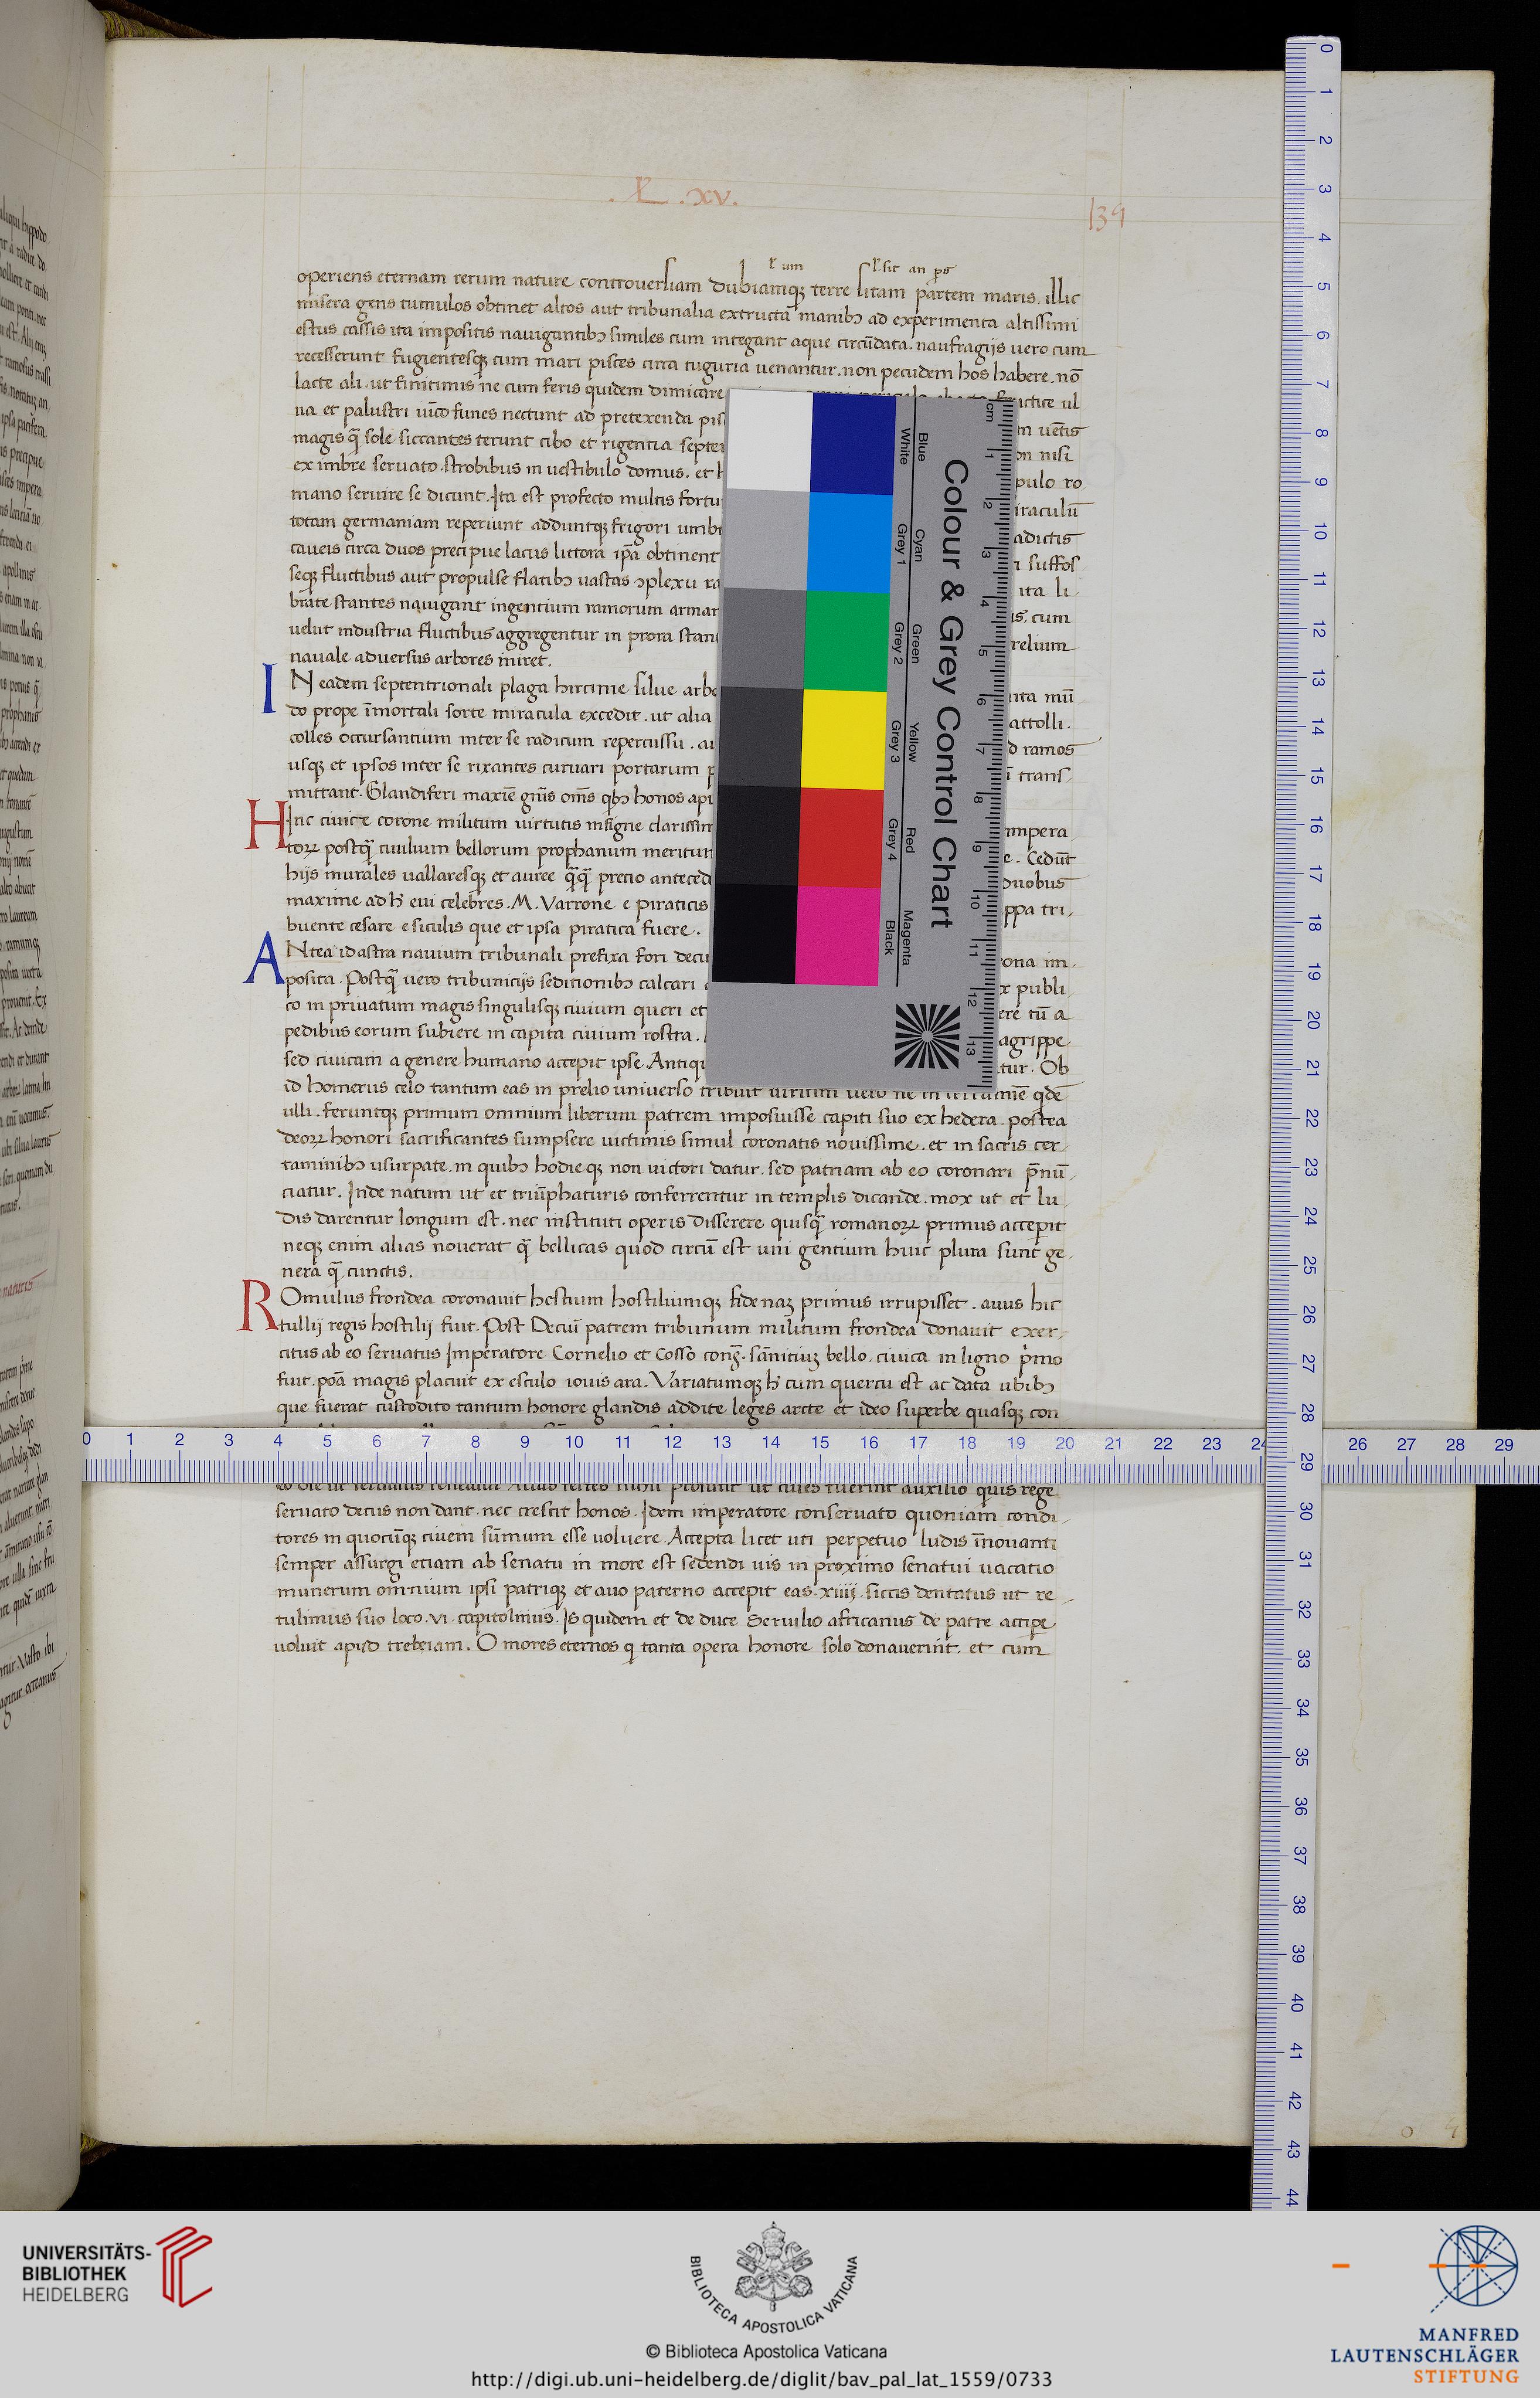 .L. .xv.
139
ł um ł sic an ps
operiens eternam rerum nature controuersiam dubiamqȝ terre sitam partem maris. illic
misera gens tumulos obtinet altos aut tribunalia extructa manibȝ ad experimenta altissimi
estus cassis ita impositis nauigantibȝ similes cum integant aque circūdata. naufragijs uero cum
recesserunt fugientesqȝ cum mari pisces circa tuguria uenantur. non pecudem hos habere. nō
lacte ali. ut finitimis ne cum feris quidem dimicare fructice ul
ua et palustri iūco funes nectunt ad pretexenda pis m uētis
magis q̄ sole siccantes terunt cibo et rigentia septe on nisi
ex imbre seruato. strobibus in uestibulo domus. et h pulo ro
mano seruire se dicunt. Ita est profecto multis fortu iraculū
totam germaniam reperiunt adduntqȝ frigori umb adictis
caueis circa duos precipue lacus littora ip̄a obtinent i suffos
seqȝ fluctibus aut propulse flatibȝ uastas ↄplexu ra ita li
brate stantes nauigant ingentium ramorum armar is. cum
uelut industria fluctibus aggregentur in prora stan relium
nauale aduersus arbores inirēt.
IN eadem septentrionali plaga hircinie silue arbo ita mū
do prope īmortali sorte miracula excedit. ut alia attolli.
colles occursantium inter se radicum repercussu. au d ramos
usqȝ et ipsos inter se rixantes curuari portarum p ī trans
mittant. Glandiferi maxīe gn̄is om̄s qbȝ honos apu
HInc ciuice corone militum uirtutis insigne clarissim impera
toꝝ postq̄ ciuilium bellorum prophanum meritum e. Cedūt
hijs murales uallaresqȝ et auree q̄q̄ precio anteced duobus
maxime ad h̄ eui celebres. M. Varrone e piraticis ppa tri
buente cesare e siculis que et ipsa piratica fuere.
ANtea idastra nauium tribunali prefixa fori decu rona im
posita. Postq̄ uero tribunicijs seditionibȝ calcari r publi
co in priuatum magis singulisqȝ ciuium queri et ere tū a
pedibus eorum subiere in capita ciuium rostra. agrippe
sed ciuicam a genere humano accepit ipse. Antiqu tur. Ob
id homerus celo tantum eas in prelio uniuerso tribuit uiritim uero ne in certamīe qdē
ulli. feruntqȝ primum omnium liberum patrem imposuisse capiti suo ex hedera. postea
deoꝝ honori sacrificantes sumpsere uictimis simul coronatis nouissime. et in sacris cer
taminibȝ usurpate. in quibȝ hodieqȝ non uictori datur. sed patriam ab eo coronari p̄nū
ciatur. Inde natum ut et triūphaturis conferrentur in templis dicande. mox ut et lu
dis darentur longum est. nec instituti operis disserere quisq̄ romanoꝝ primus acceperit
neqȝ enim alias nouerat q̄ bellicas quod circū est uni gentium huic plura sunt ge
nera q̄ cunctis.
ROmulus frondea coronauit hostum hostiliumqȝ fidenaȝ primus irrupisset. auus hic
tullij regis hostilij fuit. Post Deciū patrem tribunum militum frondea donauit exer
citus ab eo seruatus Imperatore Cornelio et Cosso conȝ. sānitiuȝ bello. ciuica in ligno pͥmo
fuit. poā magis placuit ex esculo iouis ara. Variatumqȝ h̄ cum quercu est ac data ubibȝ
que fuerat custodito tantum honore glandis addite leges arcte et ideo superbe quasqȝ con
eo die ut seruatus fateatur alias testes nihil prosunt ut ciues fuerint auxilio quis rege
seruato decus non dant. nec crescit honos. Idem imperatore conseruato quoniam condi
tores in quocūqȝ ciuem sūmum esse uoluere. Accepta licet uti perpetuo ludis īnouanti
semper assurgi etiam ab senatu in more est sedendi uis in proximo senatui uacatio
munerum omnium ipsi patriqȝ et auo paterno accepit eas. xiiij. siccis dentatus ut re
tulimus suo loco. vi. capitolinus. Is quidem et de duce Seruilio africanus de patre accipe
uoluit apud trebeiam. O mores eternos q tanta opera honore solo donauerint. et cum
Colour & Grey Control Chart
Blue Cyan Green Yellow Red Magenta
White Grey 1 Grey 2 Grey 3 Grey 4 Black
cm 1 2 3 4 5 6 7 8 9 10 11 12 13
0 1 2 3 4 5 6 7 8 9 10 11 12 13 14 15 16 17 18 19 20 21 22 23 24 25 26 27 28 29 30 31 32 33 34 35 36 37 38 39 40 41 42 43 44
0 1 2 3 4 5 6 7 8 9 10 11 12 13 14 15 16 17 18 19 20 21 22 23 24 26 27 28 29
UNIVERSITÄTS-
BIBLIOTHEK
HEIDELBERG
BIBLIOTECA APOSTOLICA VATICANA
© Biblioteca Apostolica Vaticana
http://digi.ub.uni-heidelberg.de/diglit/bav_pal_lat_1559/0733
MANFRED
LAUTENSCHLÄGER
STIFTUNG